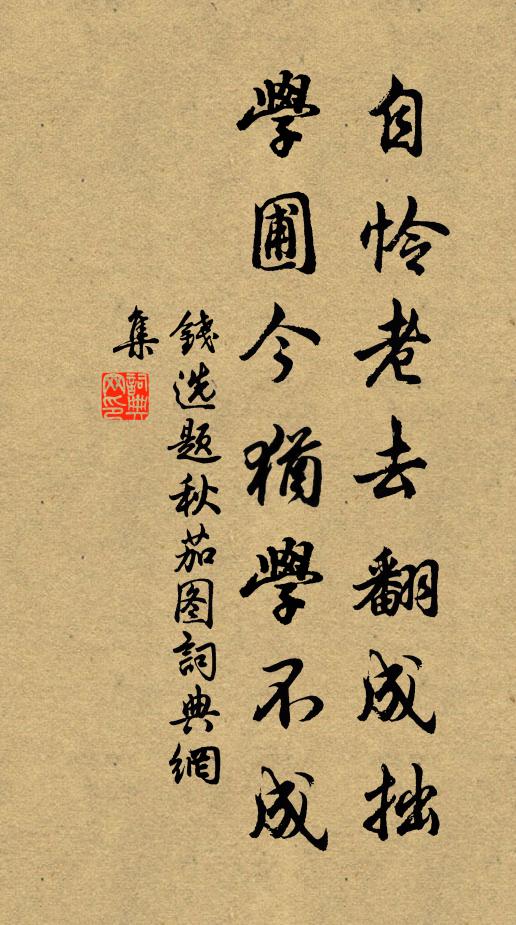 自怜老去翻成拙
學圃今猶學不成
錢选题秋茄图詞典網
集
詞典網印